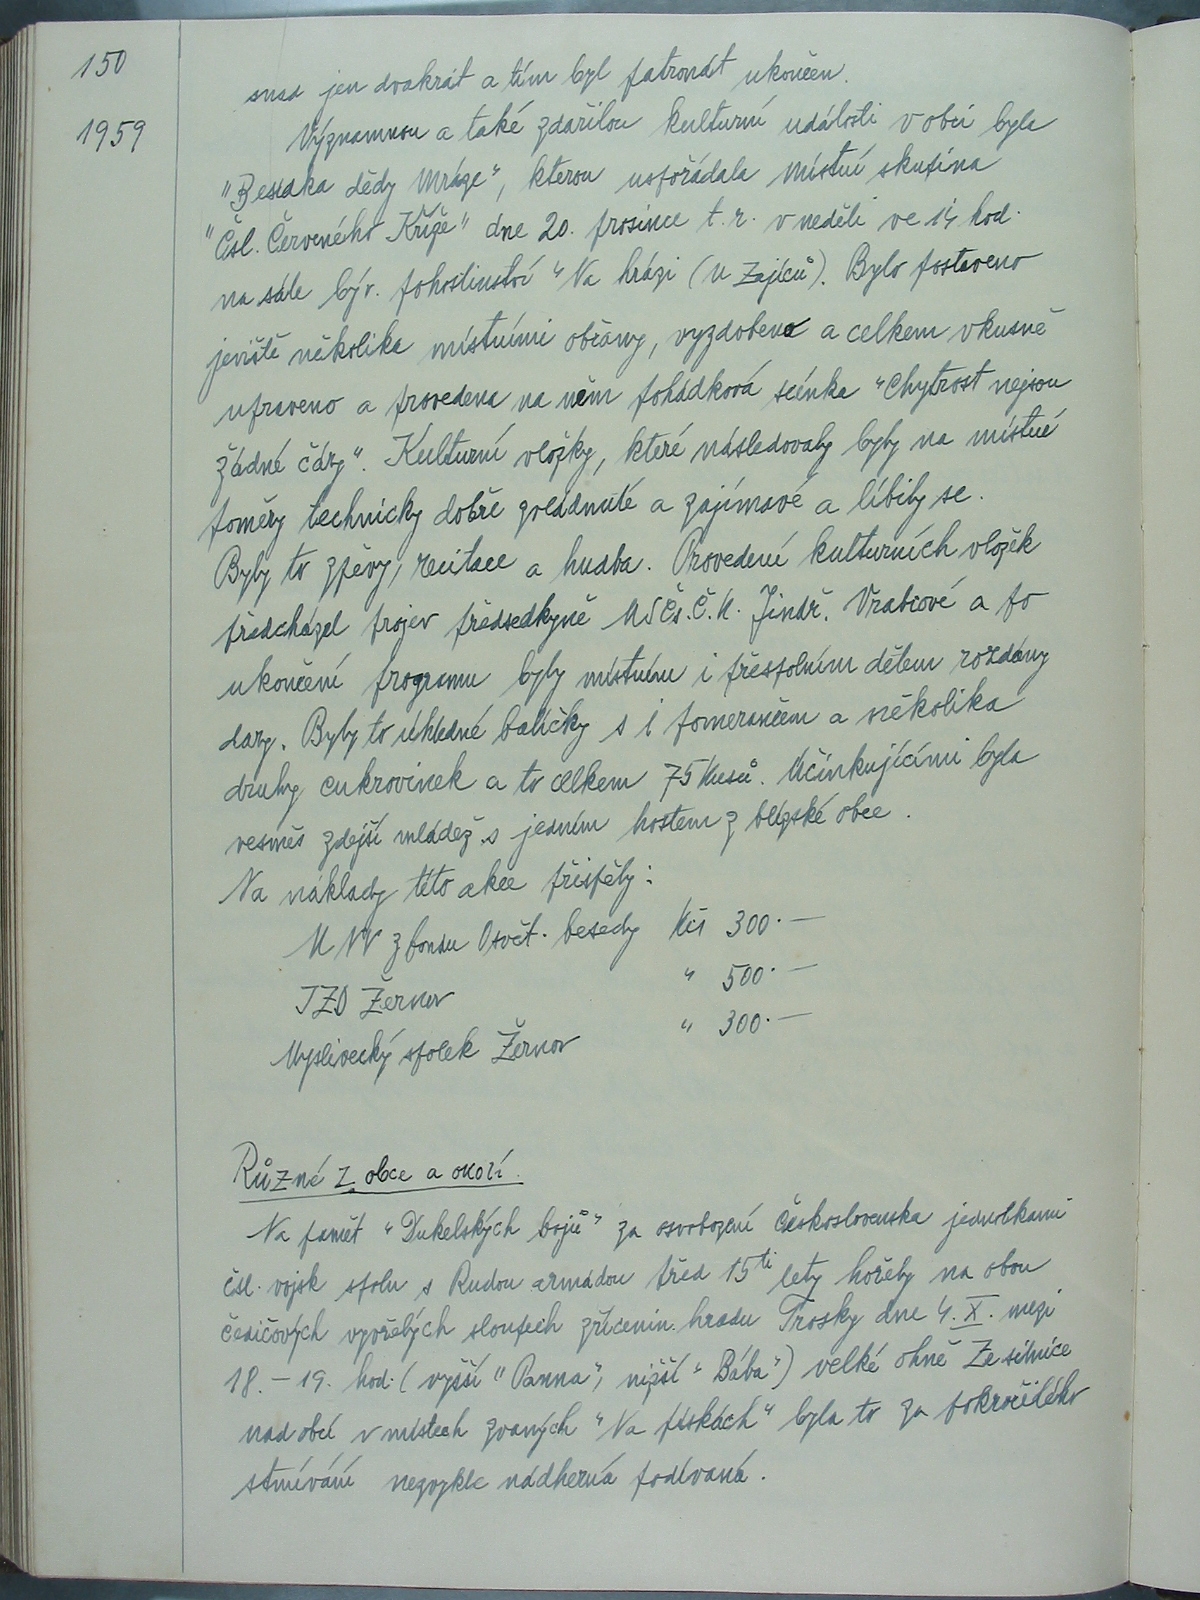 150
snad jen dvakrát a tím byl patronát ukončen.
1959
Významnou a také zdařilou kulturní událostí v obci byla
"Besídka dědy Mráze", kterou uspořádala místní skupina
"Čsl. Červeného Kříže" dne 20. prosince t.r. v neděli ve 14 hod.
na sále býv. pohostinství "Na hrázi (u Zajíců). Bylo postaveno
jeviště několika místními občany, vyzdobeno a celkem vkusně
upraveno a provedena na něm pohádková scénka "Chytrost nejsou
žádné čáry". Kulturní vložky, které následovaly byly na místné
poměry technicky dobře zvládnuté a zajímavé a líbily se.
Byly to zpěvy, recitace a hudba. Provedení kulturních vložek
předcházel projev předsedkyně MSČs.Č.K. Jindř. Vrabcové a po
ukončení programu byly místním i přespolním dětem rozdány
dary. Byly to úhledné balíčky s 1 pomerančem a několika
druhy cukrovinek a to celkem 75 kusů. Účinkujícími byla
vesměs zdejší mládež s jedním hostem z blízské obce.
Na náklady této akce přispěly:
MNV z fondu Osvět. besedy Kčs 300.—
JZD Žernov " 500.—
Myslivecký spolek Žernov " 300.—
Různé z obce a okolí.
Na paměť "Dukelských bojů" za osvobození Československa jednotkami
čsl. vojsk spolu s Rudou armádou před 15ti lety hořely na obou
čedičových vyvřelých sloupech zřícenin hradu Trosky dne 4. X. mezi
18. – 19. hod. (vyšší "Panna", nižší "Bába") velké ohně Ze silnice
nad obcí v místech zvaných "Na pískách" byla to za pokročilého
stmívání nezvykle nádherná podívaná.